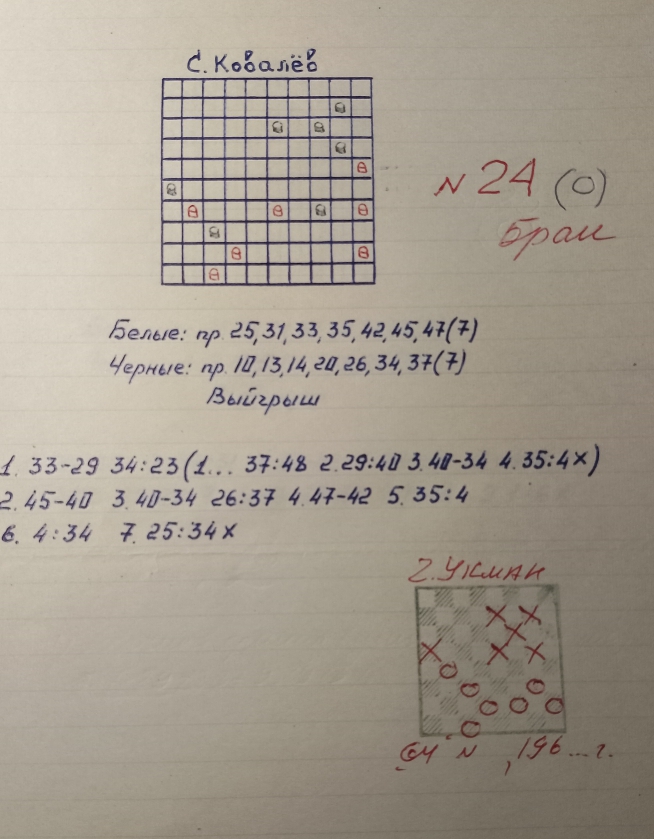 С. Ковалёв
N 24 (0)
Брак
Белые: пр. 25,31,33,35,42,45,47(7)
Черные: пр. 10,13,14,20,26,34,37(7)
Выйгрыш
1. 33-29 34:23(1... 37:48 2.29:40 3.40-34 4.35:4x)
2.45-40 3.40-34 26:37 4.47-42 5.35:4
6. 4:34 7.25:34x
Г. Укман
64 N , 196...г.